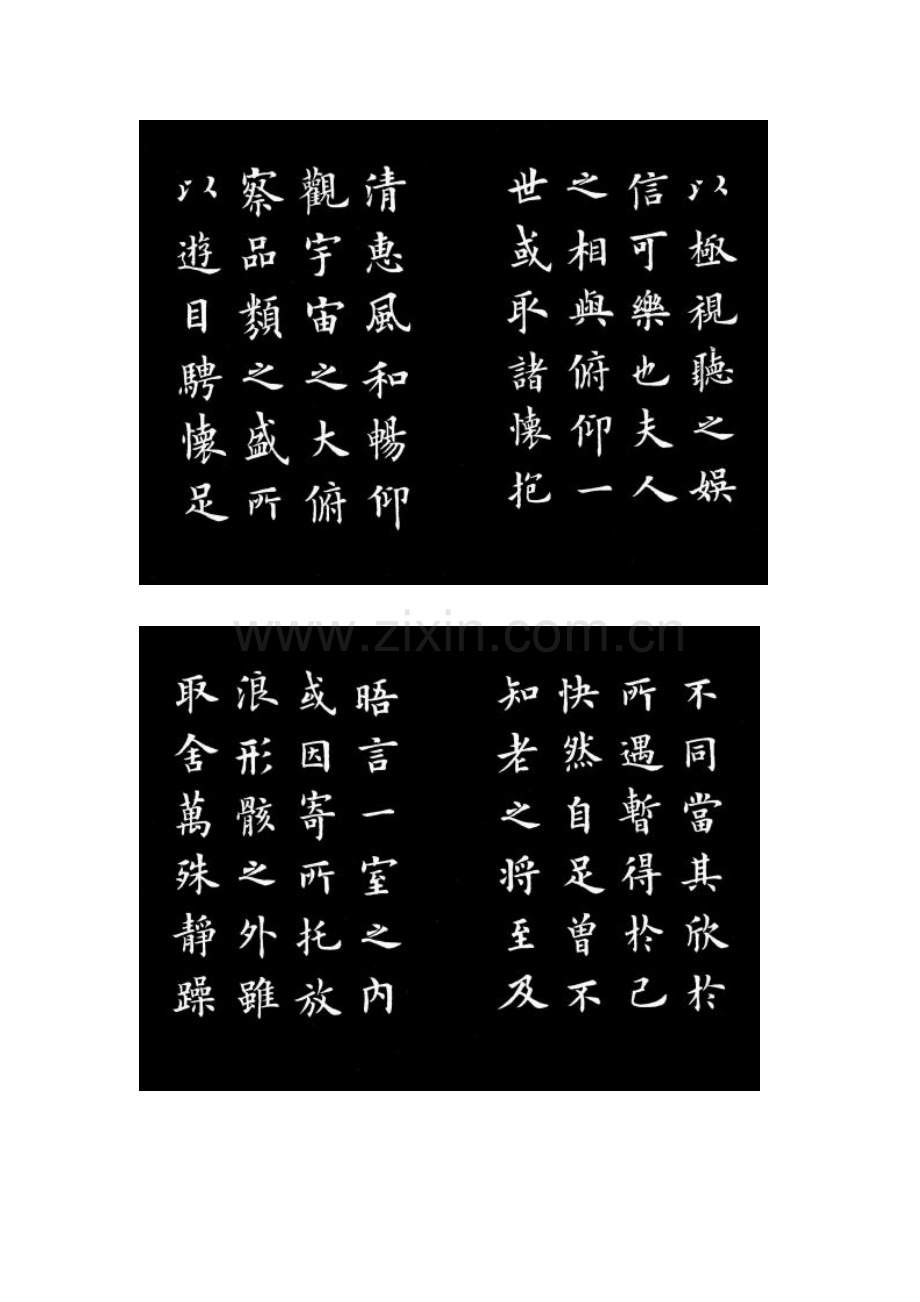 清惠風和暢仰
觀宇宙之大俯
察品類之盛所
以遊目騁懷足
以極視聽之娛
信可樂也夫人
之相與俯仰一
世或取諸懷抱
www.zixin.com.cn
晤言一室之內
或因寄所托放
浪形骸之外雖
取舍萬殊靜躁
不同當其欣於
所遇暫得於己
快然自足曾不
知老之将至及